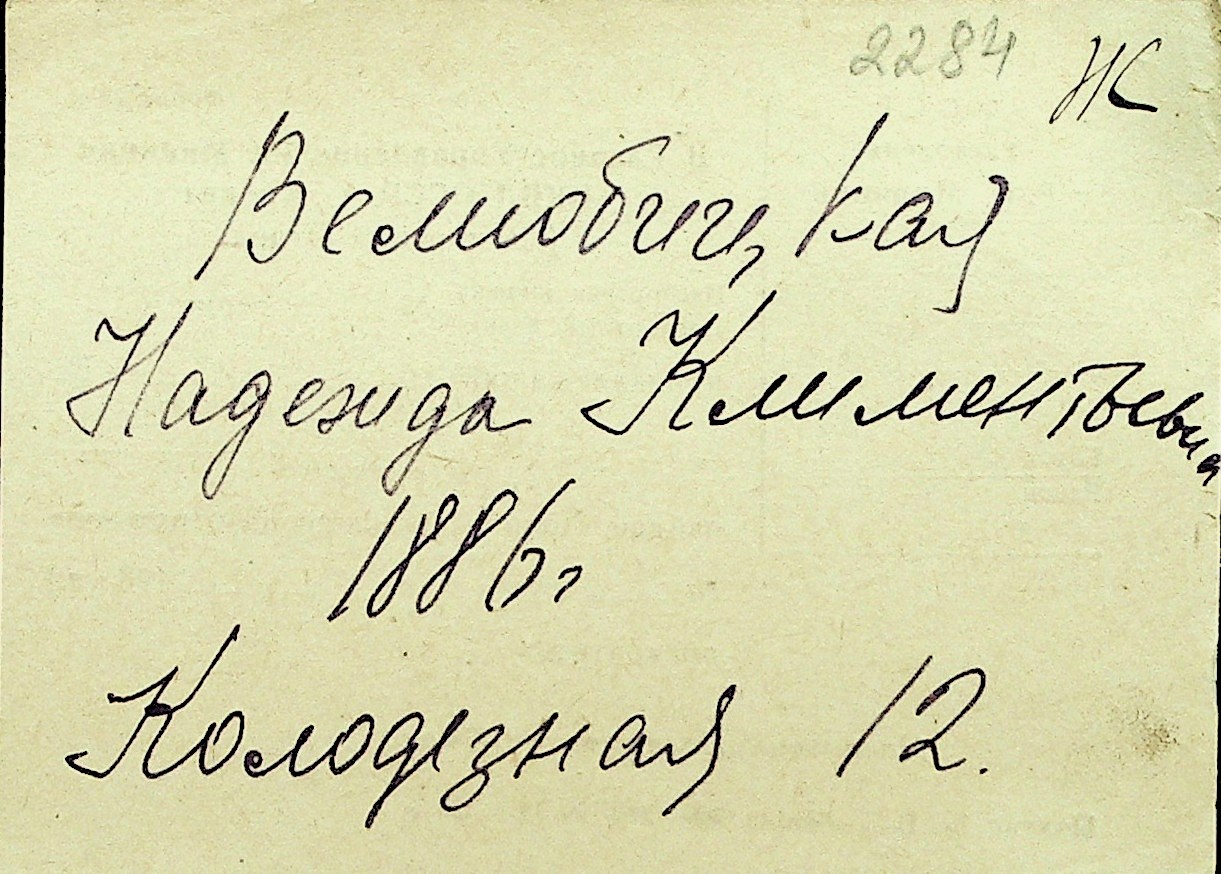 2284 Ж
Велиобицкая
Надежда Климентьевна
1886 г
Колодезная 12.